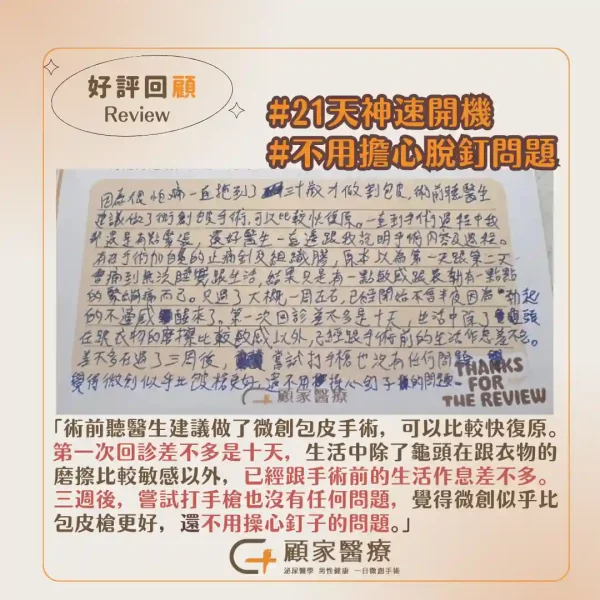 好評回顧
Review
#21天神速開機
#不用擔心脫釘問題
因為很怕痛一直拖到了三十歲才做割包皮,術前聽醫生
建議做了微創包皮手術,可以比較快復原。一直到手術過程中我
都還是有點緊張,還好醫生一直邊跟我說明手術內容及過程。
有自己術加自費的止痛針及組織膠,原本以為第一天跟第二天
會痛到無法睡覺跟生活,結果只是有一點敏感跟晨勃有一點點
的緊繃痛而已。只過了大概一周左右,已經開始不會半夜因為勃起
的不適感醒來了。第一次回診差不多是十天,生活中除了龜頭
在跟衣物的磨擦比較敏感以外,已經跟手術前的生活作息差不多。
差不多在過了三周後,嘗試打手槍也沒有任何問題,
覺得微創似乎比包皮槍更好,還不用操心釘子的問題。
THANKS
FOR
THE REVIEW
顧家醫療
「術前聽醫生建議做了微創包皮手術,可以比較快復原。
第一次回診差不多是十天,生活中除了龜頭在跟衣物的
磨擦比較敏感以外,已經跟手術前的生活作息差不多。
三週後,嘗試打手槍也沒有任何問題,覺得微創似乎比
包皮槍更好,還不用操心釘子的問題。」
顧家醫療
泌尿醫學 男性健康 一日微創手術